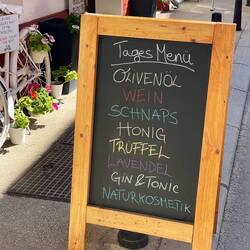 Tages Menü
OLIVENÖL
WEIN
SCHNAPS
HONIG
TRÜFFEL
LAVENDEL
GIN & TONIC
NATURKOSMETIK